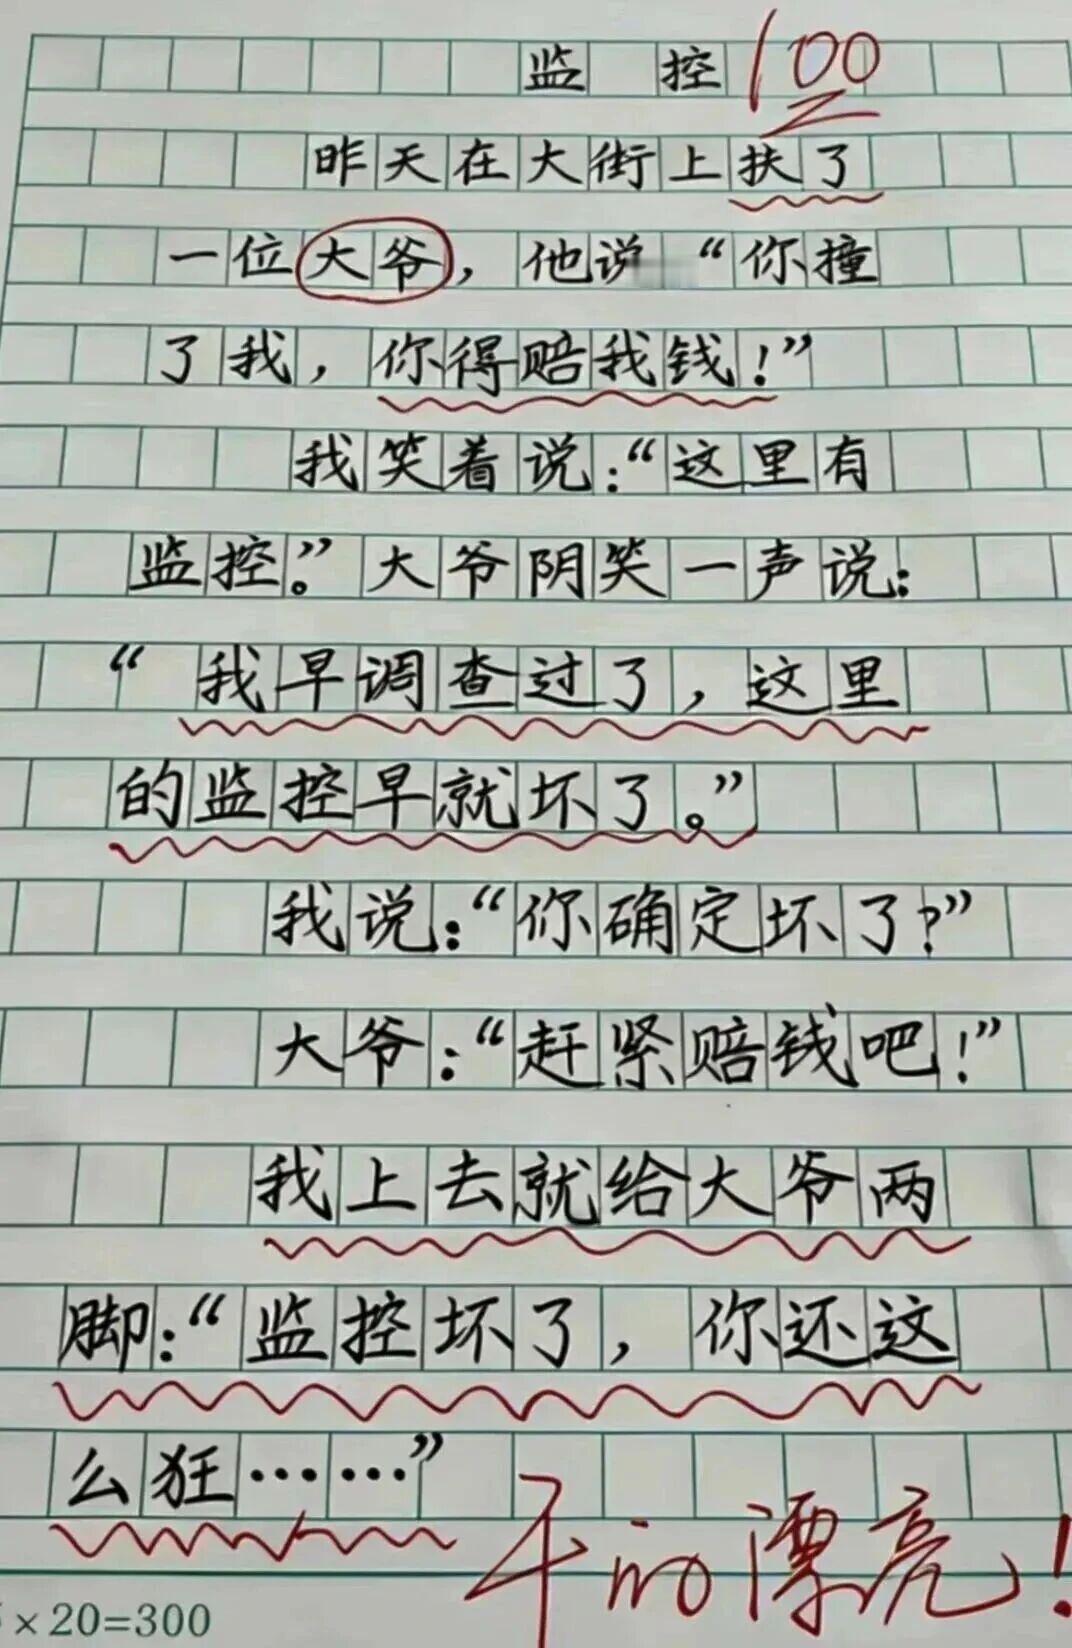 监控 100
昨天在大街上扶了
一位大爷，他说“你撞
了我，你得赔我钱！”
我笑着说：“这里有
监控。”大爷阴笑一声说：
“我早调查过了，这里
的监控早就坏了。”
我说：“你确定坏了？”
大爷：“赶紧赔钱吧！”
我上去就给大爷两
脚：“监控坏了，你还这
么狂……”
干的漂亮！
×20=300